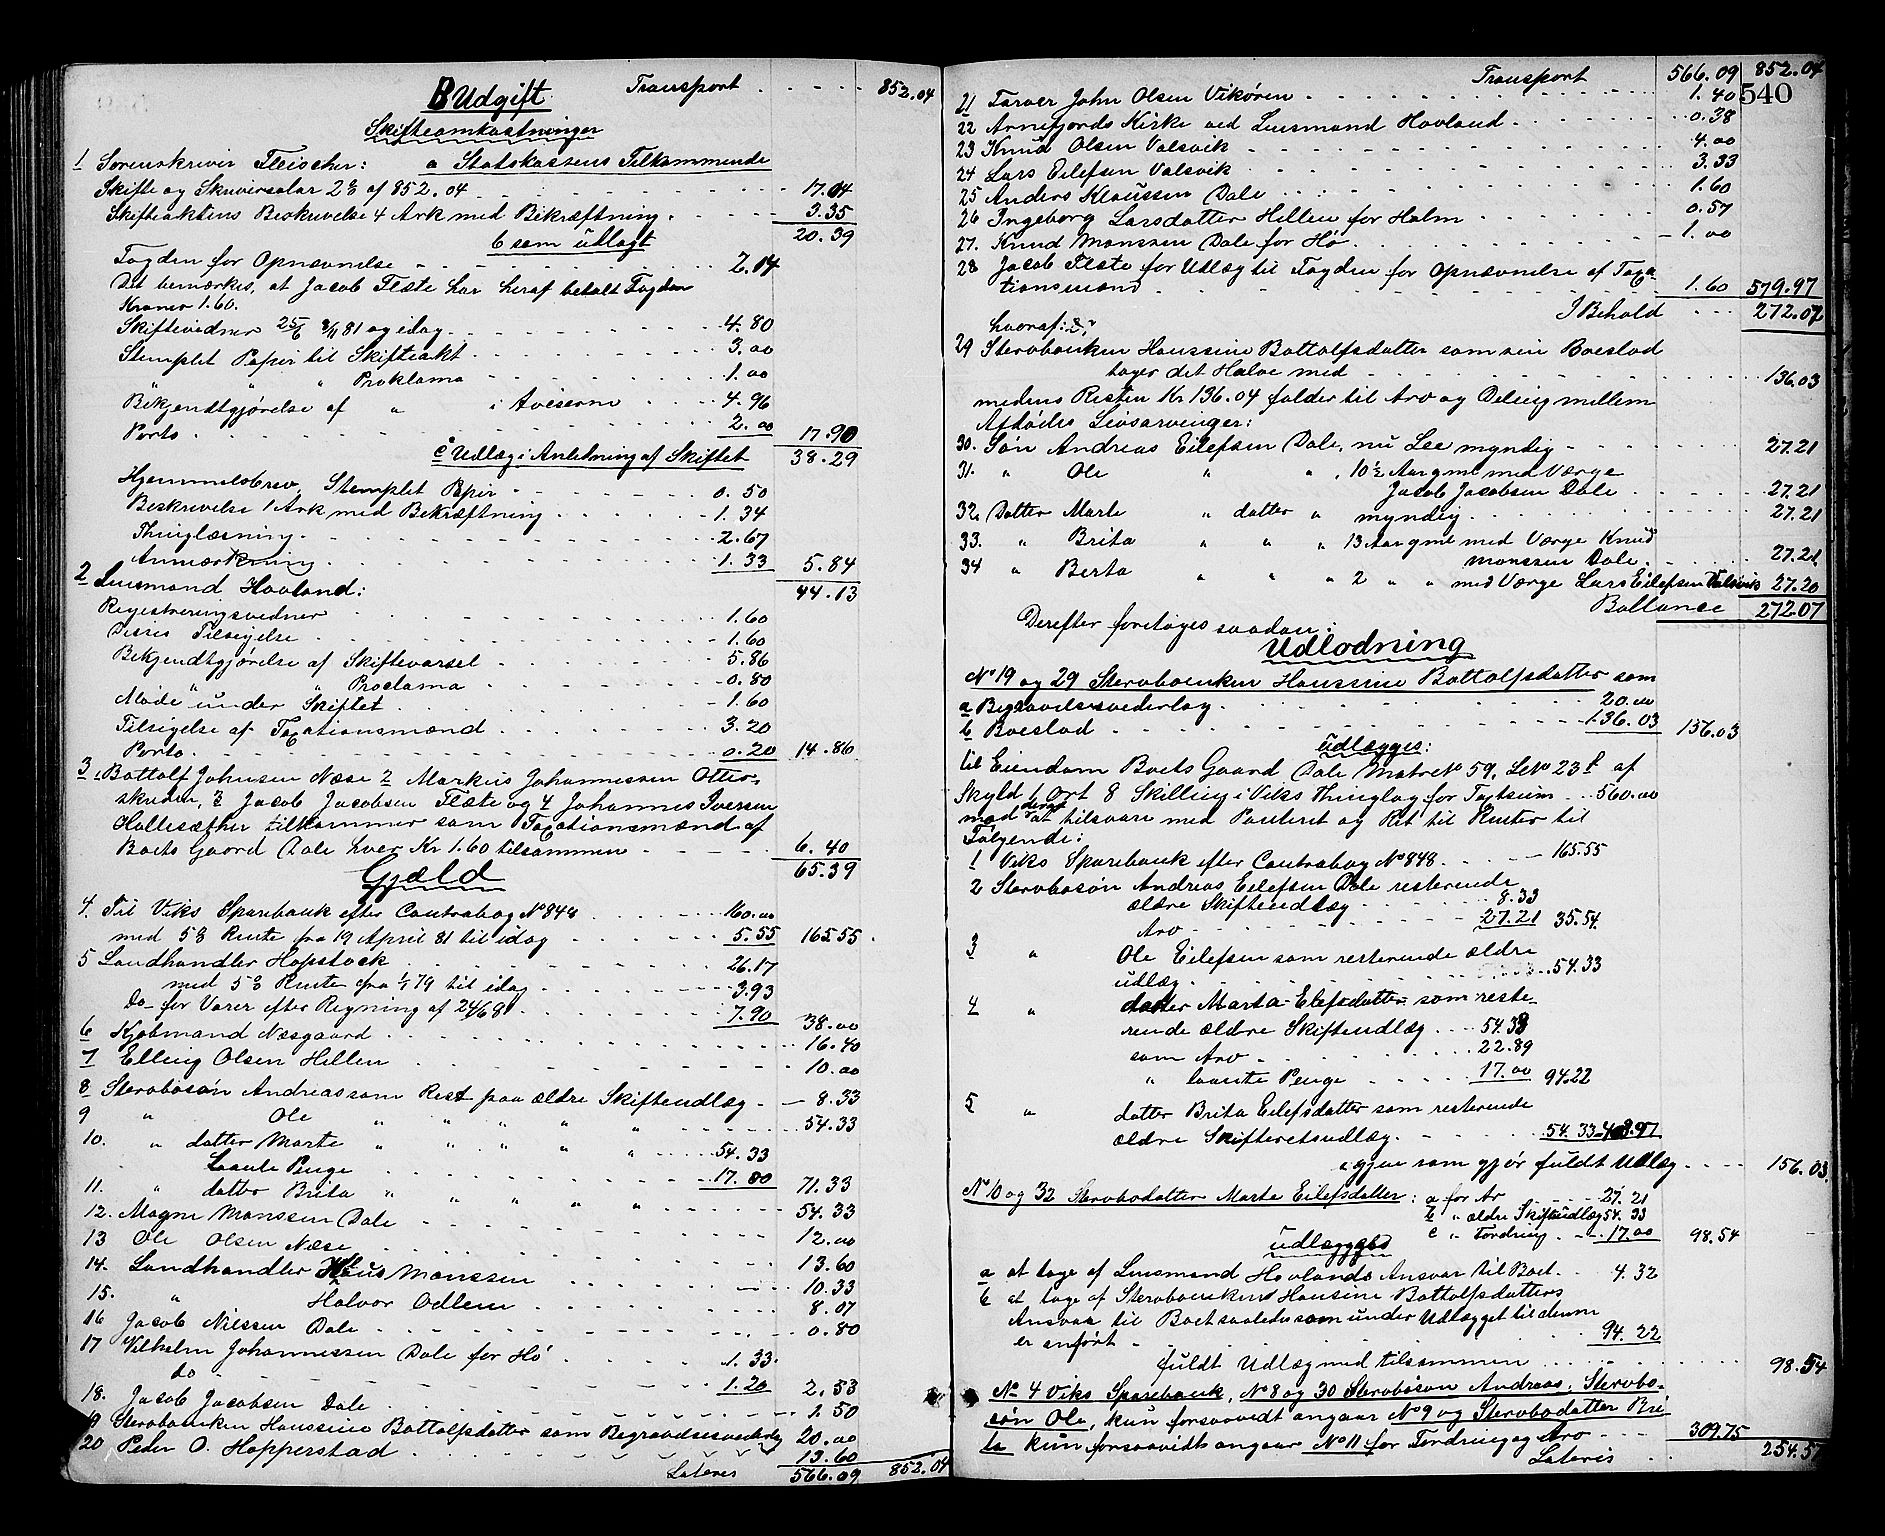 B Udgift Transport 852.04
Skifteomkostninger
1 Sorenskriver Fleischer: a Statskassens Tilkommende
Skifte og Skriversalar 2% af 852.04 17.04
Skifteaktens Beskrivelse 4 Ark med Bekræftning 3.35
b som udlagt 20.39
Fogden for Opnævnelse 2.14
Det bemærkes, at Jacob Flæte har heraf betalt Fogden
Kroner 1.60.
Skiftevidner 25/6 81 og idag 4.80
Stemplet Papir til Skifteakt 3.00
" " " Proklama 1.00
Bekjendtgjørelse af " i Aviserne 4.96
Porto 2.00 17.90
c Udlæg i Anledning af Skiftet 38.29
Hjemmelsbrev, Stemplet Papir 0.50
Beskrivelse 1 Ark med Bekræftning 1.34
Thinglæsning 2.67
Anmærkning 1.33 5.84
2 Lensmand Hovland: 44.13
Registreringsvidner 1.60
Disses Tilsigelse 1.60
Bekjendtgjørelse af Skiftevarsel 5.86
" " Proclama 0.80
Møde under Skiftet 1.60
Tilsigelse af Taxationsmænd 3.20
Porto 0.20 14.86
3 1 Bottolf Johnsen Næse 2 Markus Johannessen Otter-
skreden, 3 Jacob Jacobsen Flæte og 4 Johannes Iversen
Hallesæther tilkommer som Taxationsmænd af
Boets Gaard Dale hver Kr 1.60 tilsammen 6.40
Gjæld 65.39
4. Til Viks Sparebank efter Contrabog No 848 160.00
med 5% Rente fra 19 April 81 til idag 5.55 165.55
5 Landhandler Hopstock 26.17
med 5% Rente fra 1/1 79 til idag 3.93
Do for Varer efter Regning af 24/6 81 7.90 38.00
6 Kjøbmand Næsgaard 16.40
7 Elling Olsen Hillen 10.00
8 Stervbosøn Andreas som Rest paa ældre Skifteudlæg 8.33
9 " Ole " " " " " 54.33
10. " datter Marte " " " " " 54.33
Laante Penge 17.00 71.33
11. " datter Brita " " " " " 54.33
12. Magne Monssen Dale 12.00
13 Ole Olsen Næse 13.60
14. Landhandler Hans Monssen 10.33
15. " Halvor Odlem 8.07
16 Jacob Nilssen Dale 0.80
17 Vilhelm Johannessen Dale for Hø 1.33
do 1.20 2.53
18. Jacob Jacobsen Dale 1.50
19 Stervboenken Hanssine Bottolfsdatter som Begravelsesvederlag 20.00
20 Peder O. Hopperstad 13.60
Lateris 566.09 852.04
Transport 566.09 852.04
540
21 Farver John Olsen Vikøren 1.40
22 Arnefjords Kirke ved Lensmand Hovland 0.38
23 Knud Olsen Valsvik 4.00
24 Lars Eilefsen Valsvik 3.33
25 Anders Klaussen Dale 1.60
26 Ingeborg Larsdatter Hillen for Halm 0.57
27. Knud Monssen Dale for Hø 1.00
28 Jacob Flæte for Udlæg til Fogden for Opnævnelse af Taxa-
tionsmænd 1.60 579.97
I Behold 272.07
hvoraf:
29 Stervboenken Hanssine Bottolfsdatter som sin Boeslod
tager det Halve med 136.03
medens Resten Kr 136.04 falder til Arv og Deling mellem
Afdødes Livsarvinger:
30. Søn Andreas Eilefsen Dale, nu Lee myndig 27.21
31. " Ole " " , 10½ Aar gml med Værge
Jacob Jacobsen Dale 27.21
32. Datter Marte " datter " myndig 27.21
33. " Brita " " " 13 Aar gml med Værge Knud
Monssen Dale 27.21
34 " Berta " " " 2 " " med Værge Lars Eilefsen Valsvik 27.20
Ballance 272.07
Derefter foretoges saadan:
Udlodning
No 19 og 29 Stervboenken Hanssine Bottolfsdatter som
a Begravelsesvederlag 20.00
b Boeslod 136.03 156.03
Udlægges:
til Eiendom Boets Gaard Dale Matr No 59, Le No 23 b af
Skyld 1 Ort 8 Skilling i Viks Thinglag for Taxtsum 560.00
mod deraf at tilsvare med Panteret og Ret til Renter til
Følgende:
1 Viks Sparebank efter Contrabog No 848 165.55
2 Stervbosøn Andreas Eilefsen Dale resterende
ældre Skifteudlæg 8.33
Arv 27.21 35.54
3 " Ole Eilefsen som resterende ældre
udlæg 54.33
4 " datter Marta Eilefsdatter som reste-
rende ældre Skifteudlæg 54.33
som Arv 22.89
" laante Penge 17.00 94.22
5 " datter Brita Eilefsdatter som resterende
ældre Skifteretsudlæg 54.33 403.97
igjen som gjør fuldt Udlæg 156.03
No 10 og 32 Stervbodatter Marta Eilefsdatter: a for Arv 27.21
b " ældre Skifteudlæg 54.33
c " Fordring 17.00 98.54
udlægges
a at tage af Lensmand Hovlands Ansvar til Boet 4.32
b at tage af Stervboenken Hansine Bottolfsdatters
Ansvar til Boet saaledes som under Udlægget til denne
er anført 94.22
fuldt Udlæg med tilsammen 98.54
No 4 Viks Sparebank, No 8 og 30 Stervbosøn Andreas, Stervbo-
søn Ole, kun forsaavidt angaar No 9 og Stervbodatter Bri-
ta kun forsaavidt angaar No 11 for Fordring og Arv 309.75
Lateris 254.57